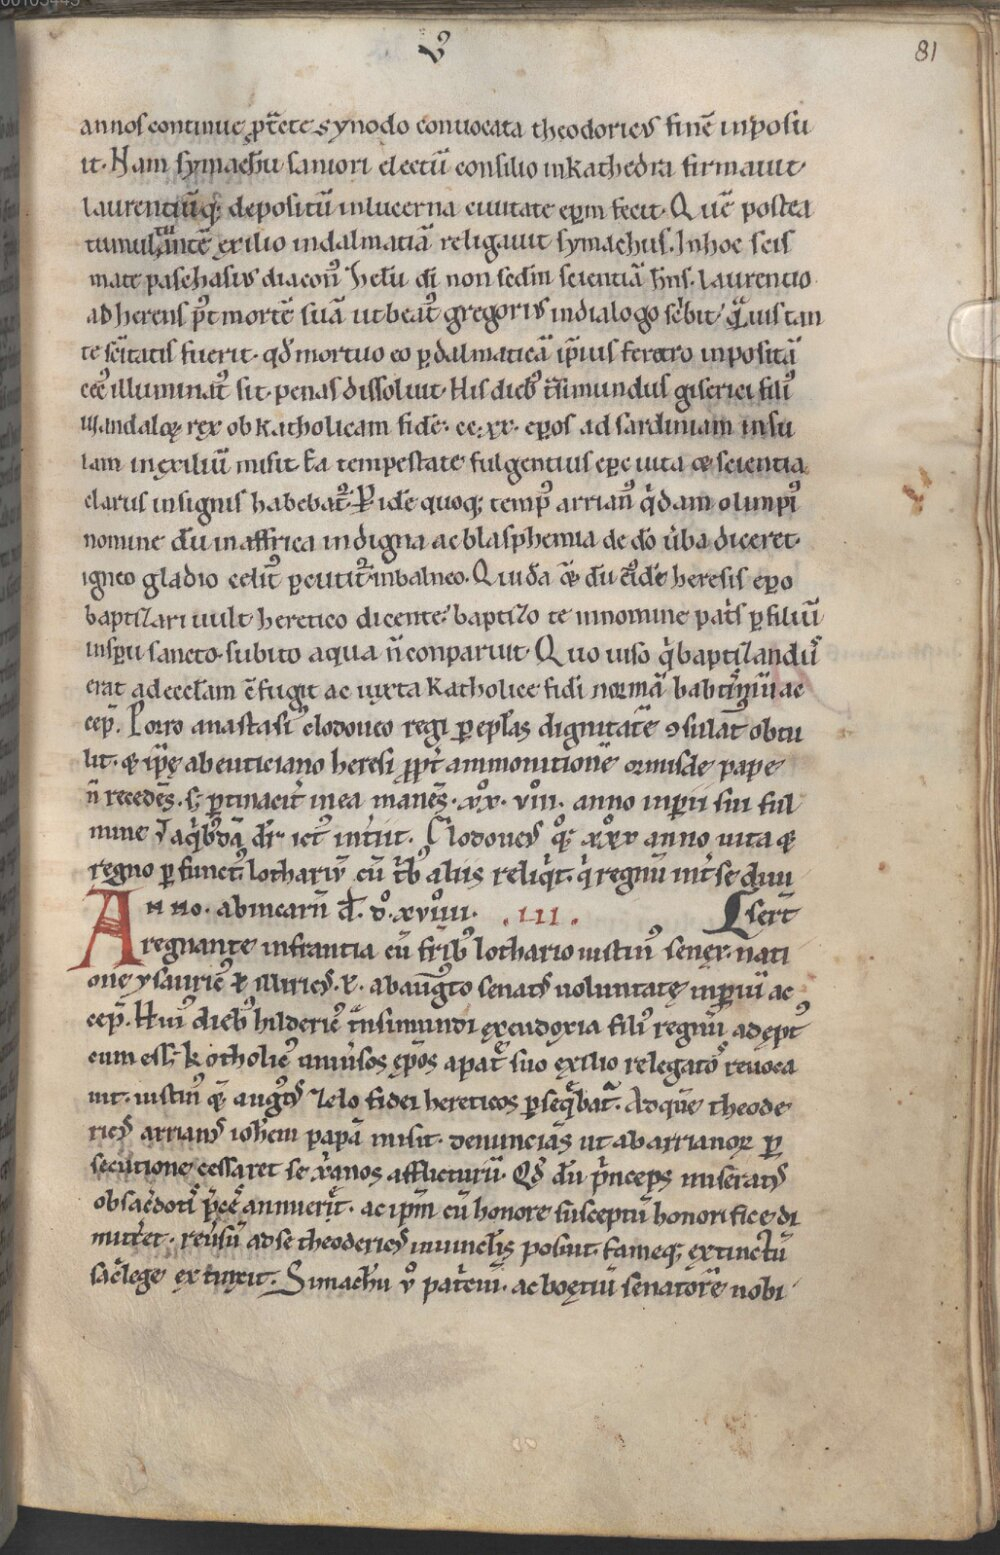 V
81
annos continue pͥtete synodo conuocata theodoricꝰ finē inposu
it. Nam symachū saniori electū consilio inkathedra firmauit.
laurentiūq; depositū inlucerna ciuitate ep̄m fecit. Quē postea
tumultuantē exilio indalmatiā religauit symachus. Inhoc scis
mate paschasius diaconꝰ licet̄ dī non sedm̄ scientiā hn̄s. laurencio
adherens p̄t mortē suā ut beatꝰ gregorius indialogo scͥbit. qͣuis tan
te scͥtatis fuerit. qd̄ mortuo eo p dalmaticā ip̄ius feretro inpositā
cecꝰ illuminatꝰ sit. penas dissoluit. His diebꝰ tͣsimundus giserici filiꝰ
wandaloꝝ rex ob katholicam fidē. cc.xx. ep̄os ad sardiniam insu
lam inexiliū misit. Ea tempestate fulgentius ep̄c uita & scientia
clarus insignis habebatꝰ. P idē quoq; tempꝰ arrianꝰ qͥdam olimpiꝰ
nomine dū inaffrica indigna ac blasphemia de dō ūba diceret.
igneo gladio celitꝰ pcutitꝰ inbalneo. Quidā q̄ dū eiꝰdē heresis ep̄o
baptizari uult heretico dicente. baptizo te innomine patͥs p filiū
insp̄u sancto. subito aqua n̄ conparuit. Quo uiso qͥ baptizandꝰ
erat ad eccl̄am ɔfugit ac iuxta katholice fidi normā babtiͥmū ac
cep̄. Porro anastasiꝰ clodoueo regi p ep̄las dignitatē ɔsulatꝰ obtu
lit. & ip̄e ab euticiano heresi ꝓpt̄ ammonitionē ormisde pape
n̄ recedēs. s; ptinacit̄ inea manēs. xͦx. vͦiii. anno inperii sui ful
mine ut aqͥbꝰdā dr̄ ictꝰ int̄iit. Clodoueꝰ qͦ&; xͦxx anno uita &
regno pfunctꝰ lothariū cū tͥbꝰ aliis reliqͥt. qͥ regnū int̄ se diui
Anno. ab incarn̄ d̄. dͦ. xvͦiiii. .LII. serūt
regnante infrantia cū frībꝰ lothario iustinꝰ senex. nati
one ysauricꝰ & illiricꝰ. &. ab augͧto senatꝰ uoluntate inperiū ac
cep̄. Huiꝰ diebꝰ hildericꝰ tͣnsimundi exeudoxia filiꝰ regnū adeptꝰ
cum ess; kotholicꝰ uniūsos ep̄os a patre suo exilio relegatos reuoca
uit. iustinꝰ q; augͧtꝰ zelo fidei hereticos pseqͣbatͣ. Ad quē theode
ricꝰ arrianꝰ ioh̄em papā misit. denunciās ut ab arrianoꝝ p
secutione cessaret se xͥanos afflicturū. Qd̄ dū pͥnceps miseratꝰ
ob sacͥdotiͥ pͥcē annuerit. ac ip̄m cū honore susceptū honorifice di
mitt̄et. reūsū ad se theodericꝰ inuinclīs posuit. fameq; extinctū
sacͥlege extinxit. Simachū ūͦ patͥciū. ac boetiū senatorē nobi